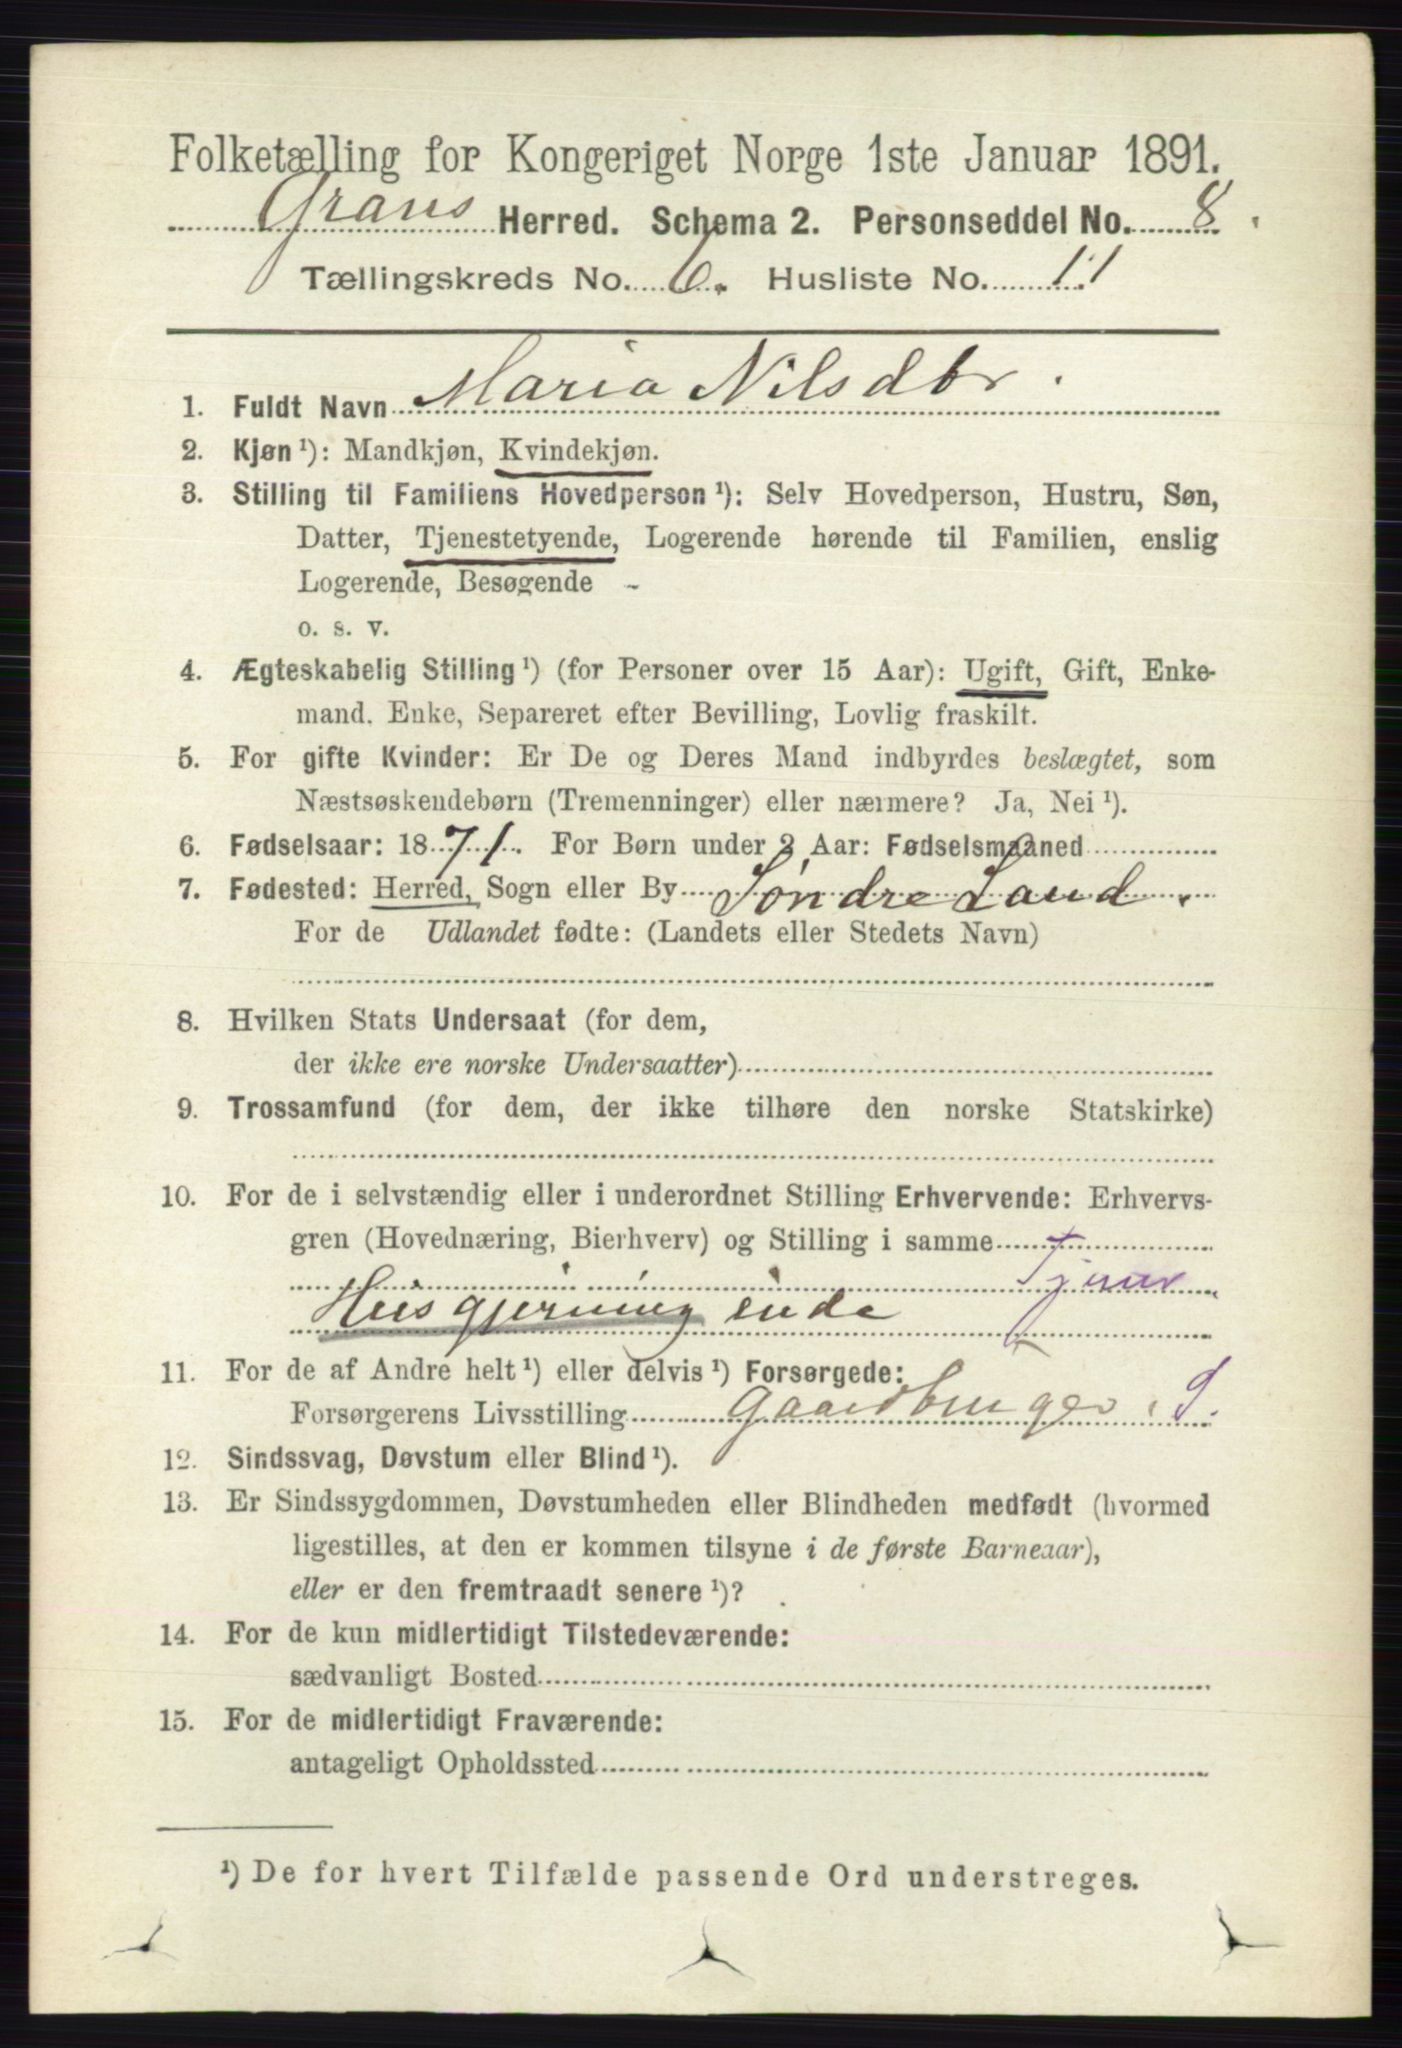 Folketælling for Kongeriget Norge 1ste Januar 1891.
Grans Herred. Schema 2. Personseddel No. 8.
Tællingskreds No. 6. Husliste No. 11
1. Fuldt Navn Maria Nilsdtr.
2. Kjøn ¹): Mandkjøn, Kvindekjøn.
3. Stilling til Familiens Hovedperson ¹): Selv Hovedperson, Hustru, Søn,
Datter, Tjenestetyende, Logerende hørende til Familien, enslig
Logerende, Besøgende
o. s. v.
4. Ægteskabelig Stilling ¹) (for Personer over 15 Aar): Ugift, Gift, Enke-
mand. Enke, Separeret efter Bevilling, Lovlig fraskilt.
5. For gifte Kvinder: Er De og Deres Mand indbyrdes beslægtet, som
Næstsøskendebørn (Tremenninger) eller nærmere? Ja, Nei ¹).
6. Fødselsaar: 1871. For Børn under 2 Aar: Fødselsmaaned
7. Fødested: Herred, Sogn eller By Søndre Land.
For de Udlandet fødte: (Landets eller Stedets Navn)
8. Hvilken Stats Undersaat (for dem,
der ikke ere norske Undersaatter)
9. Trossamfund (for dem, der ikke tilhøre den norske Statskirke)
10. For de i selvstændig eller i underordnet Stilling Erhvervende: Erhvervs-
gren (Hovednæring, Bierhverv) og Stilling i samme
Husgjerning inde
11. For de af Andre helt ¹) eller delvis ¹) Forsørgede:
Forsørgerens Livsstilling Gaardbruger. S.
12. Sindssvag, Døvstum eller Blind ¹).
13. Er Sindssygdommen, Døvstumheden eller Blindheden medfødt (hvormed
ligestilles, at den er kommen tilsyne i de første Barneaar),
eller er den fremtraadt senere ¹)?
14. For de kun midlertidigt Tilstedeværende:
sædvanligt Bosted
15. For de midlertidigt Fraværende:
antageligt Opholdssted
¹) De for hvert Tilfælde passende Ord understreges.